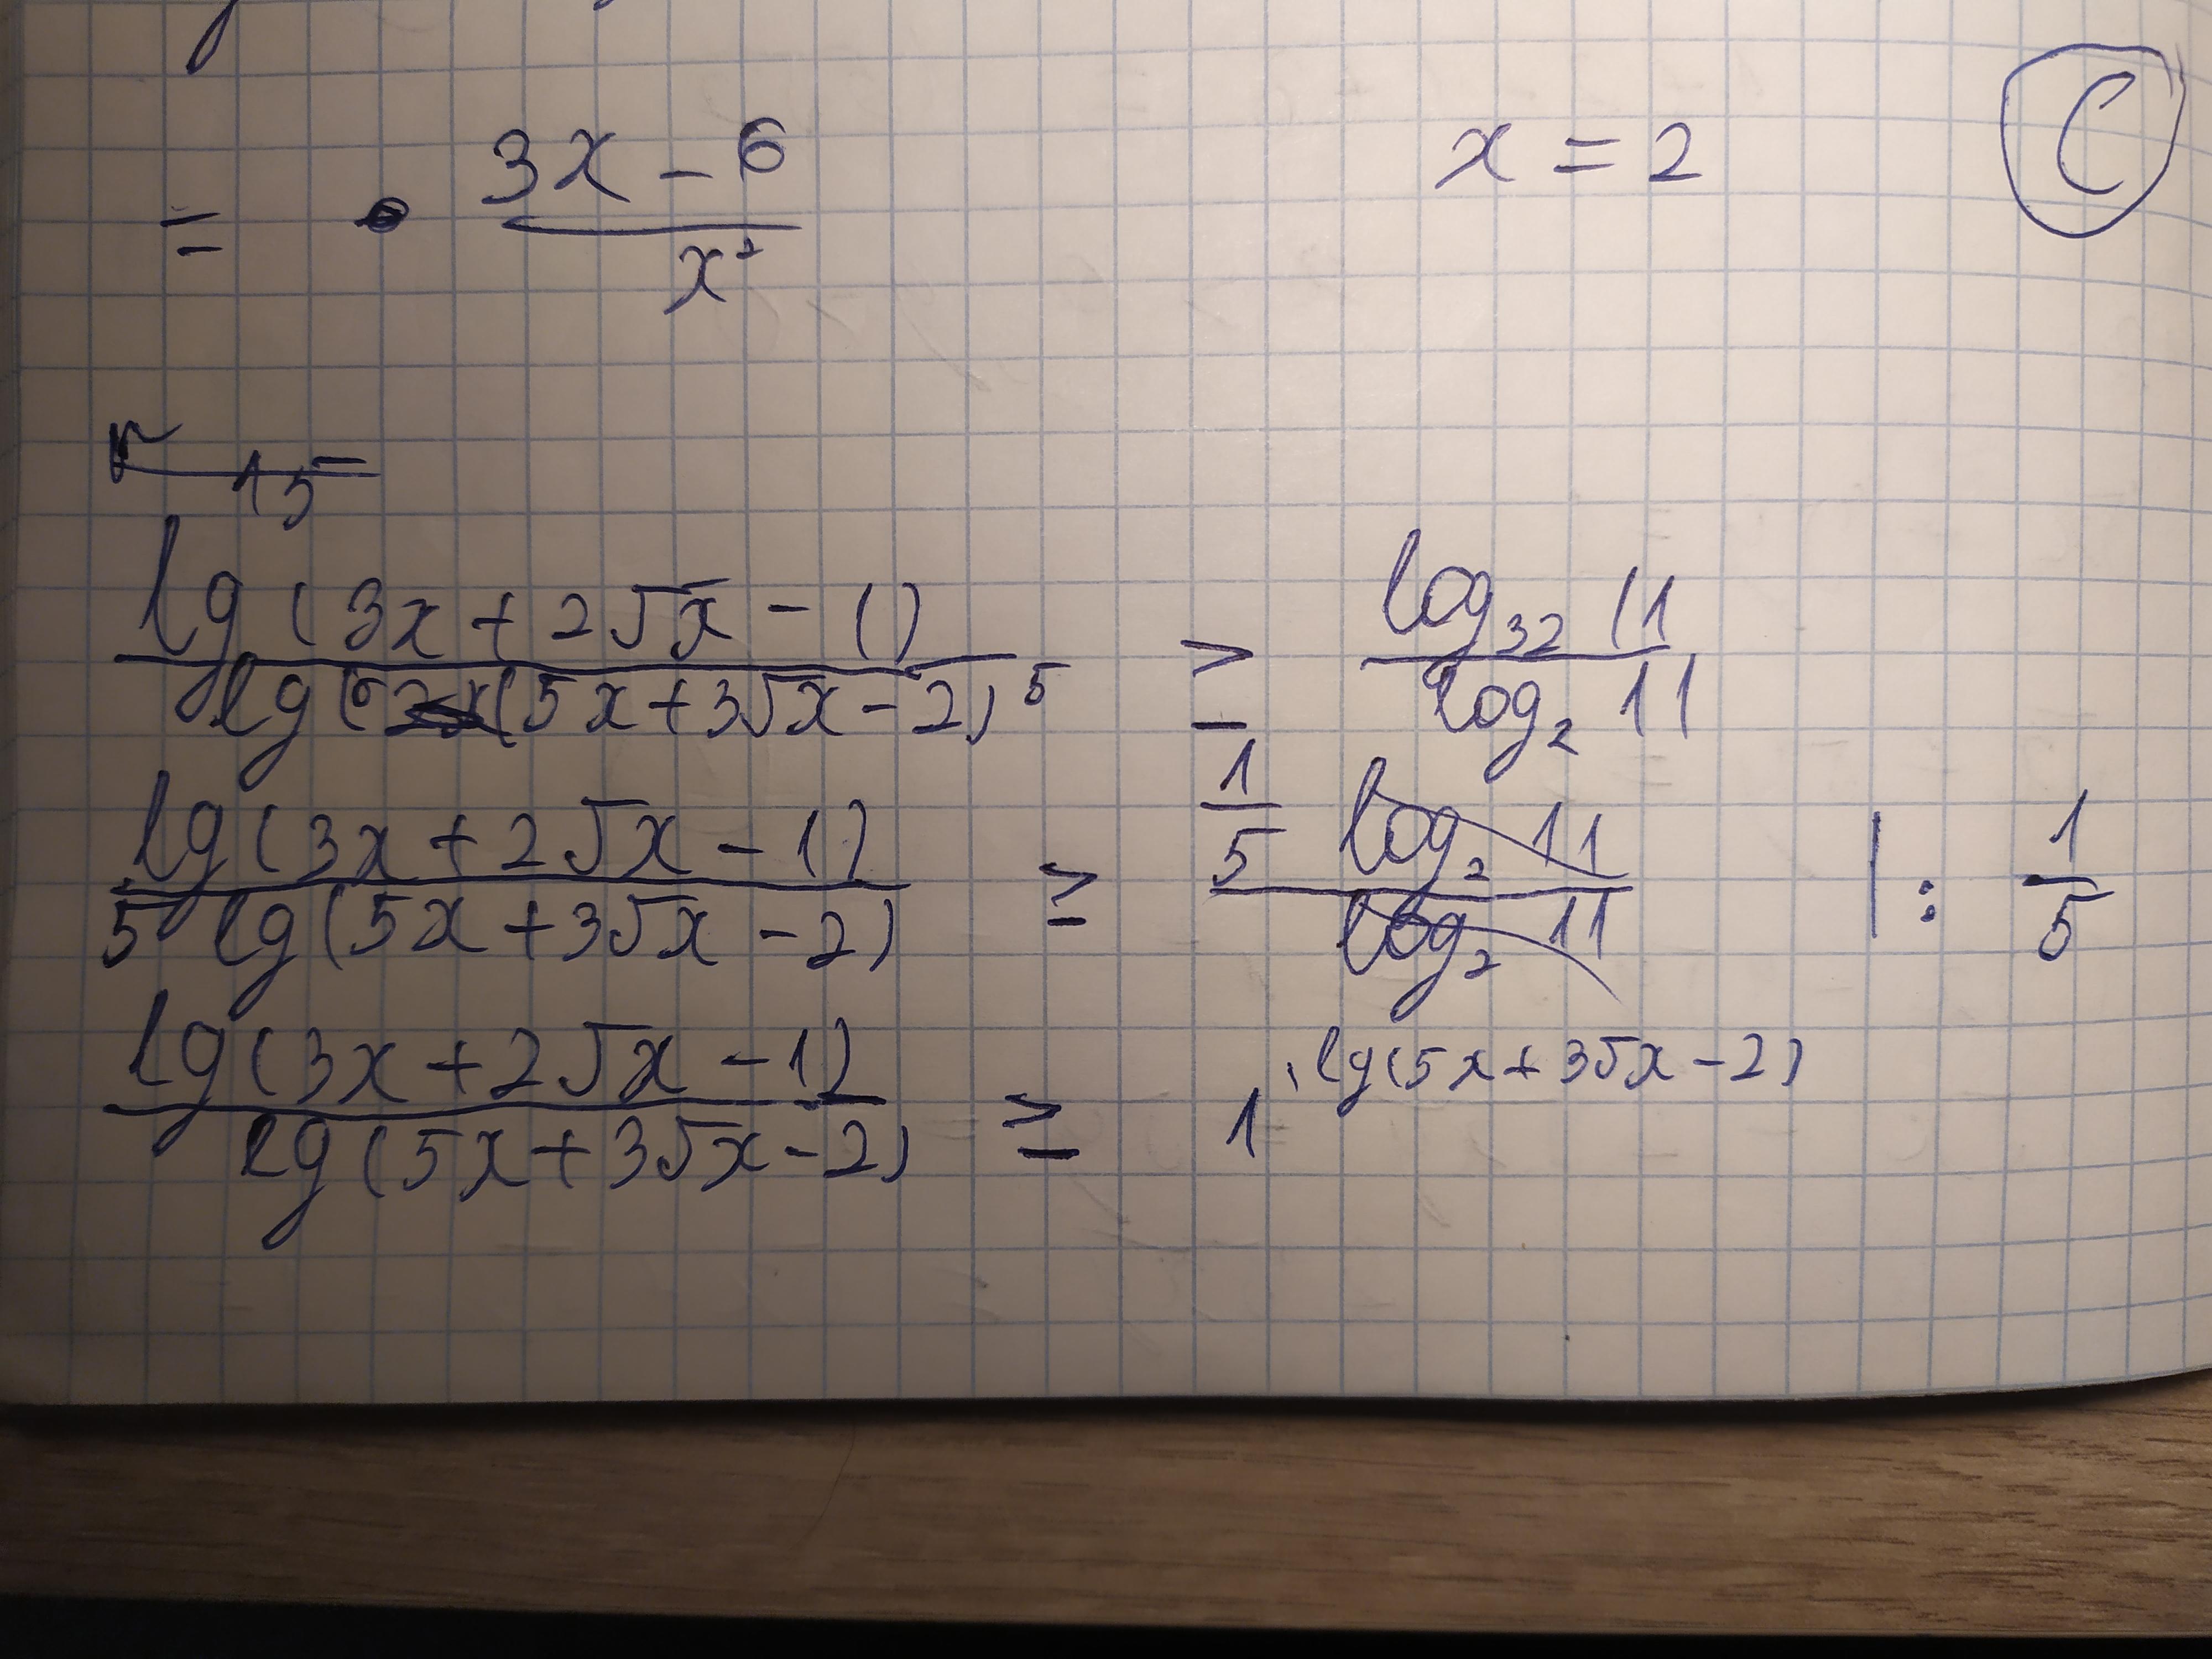 = 3x - 6 / x² x = 2 C
15
lg (3x + 2√x - 1) / lg (5x + 3√x - 2)⁵ ≥ log₃₂ 11 / log₂ 11
lg (3x + 2√x - 1) / 5 lg (5x + 3√x - 2) ≥ 1/5 log₂ 11 / log₂ 11 | : 1/5
lg (3x + 2√x - 1) / lg (5x + 3√x - 2) ≥ 1 · lg (5x + 3√x - 2)